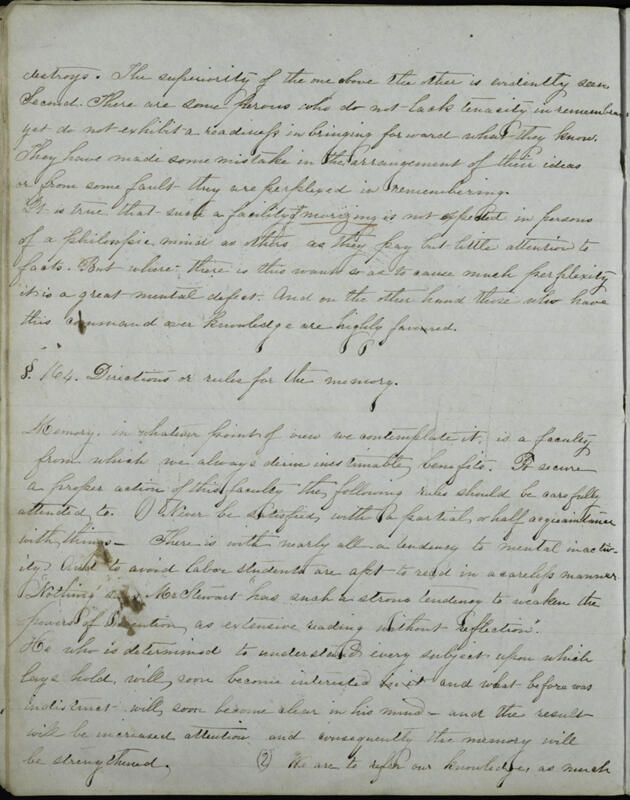 destroys. The superiority of the one above the other is evidently seen
Second. There are some persons who do not lack tenacity in remembering
yet do not exhibit a readiness in bringing forward what they know.
They have made some mistake in the arrangement of their ideas
or from some fault they are perplexed in remembering.
It is true that such a facility of is not expected in persons
of a philosofic mind as others as they pay but little attention to
facts. But where there is this want so as to cause much perplexity
it is a great mental defect. And on the other hand those who have
this command over knowledge are highly favored.
§. 164. Directions or rules for the memory.
Memory, in whatever point of view we contemplate it, is a faculty
from which we always derive inestimable benefits. To secure
a proper action of this faculty the following rules should be carefully
attended to. 1) Never be satisfied with a partial or half acquaintance
with things— There is with nearly all a tendency to mental inactiv-
ity. And to avoid labor students are apt to read in a careless manner.
"Nothing says Mr Stewart "has such a strong tendency to weaken the
powers of as extensive reading without reflection".
He who is determined to understand every subject upon which
lays hold, will soon become interested in it and what before was
indistinct will soon become clear in his mind — and the result
will be increased attention and consequently the memory will
be strengthened. (2) We are to refer our knowledge, as much